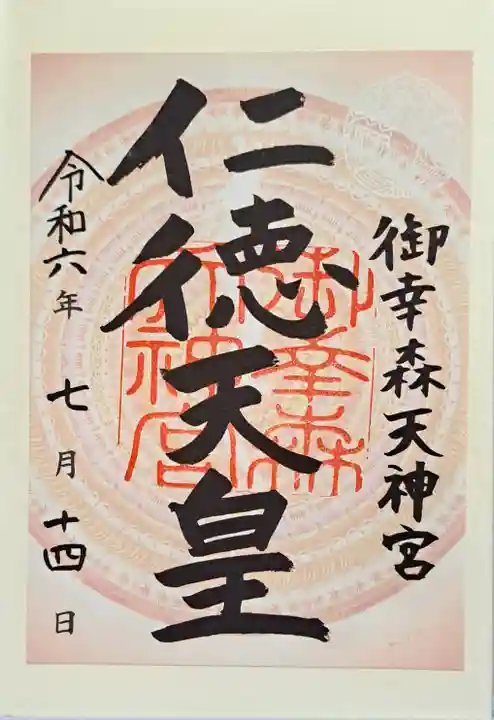 御幸森天神宮
仁徳天皇
御幸森
天神宮
令和六年 七月十四日